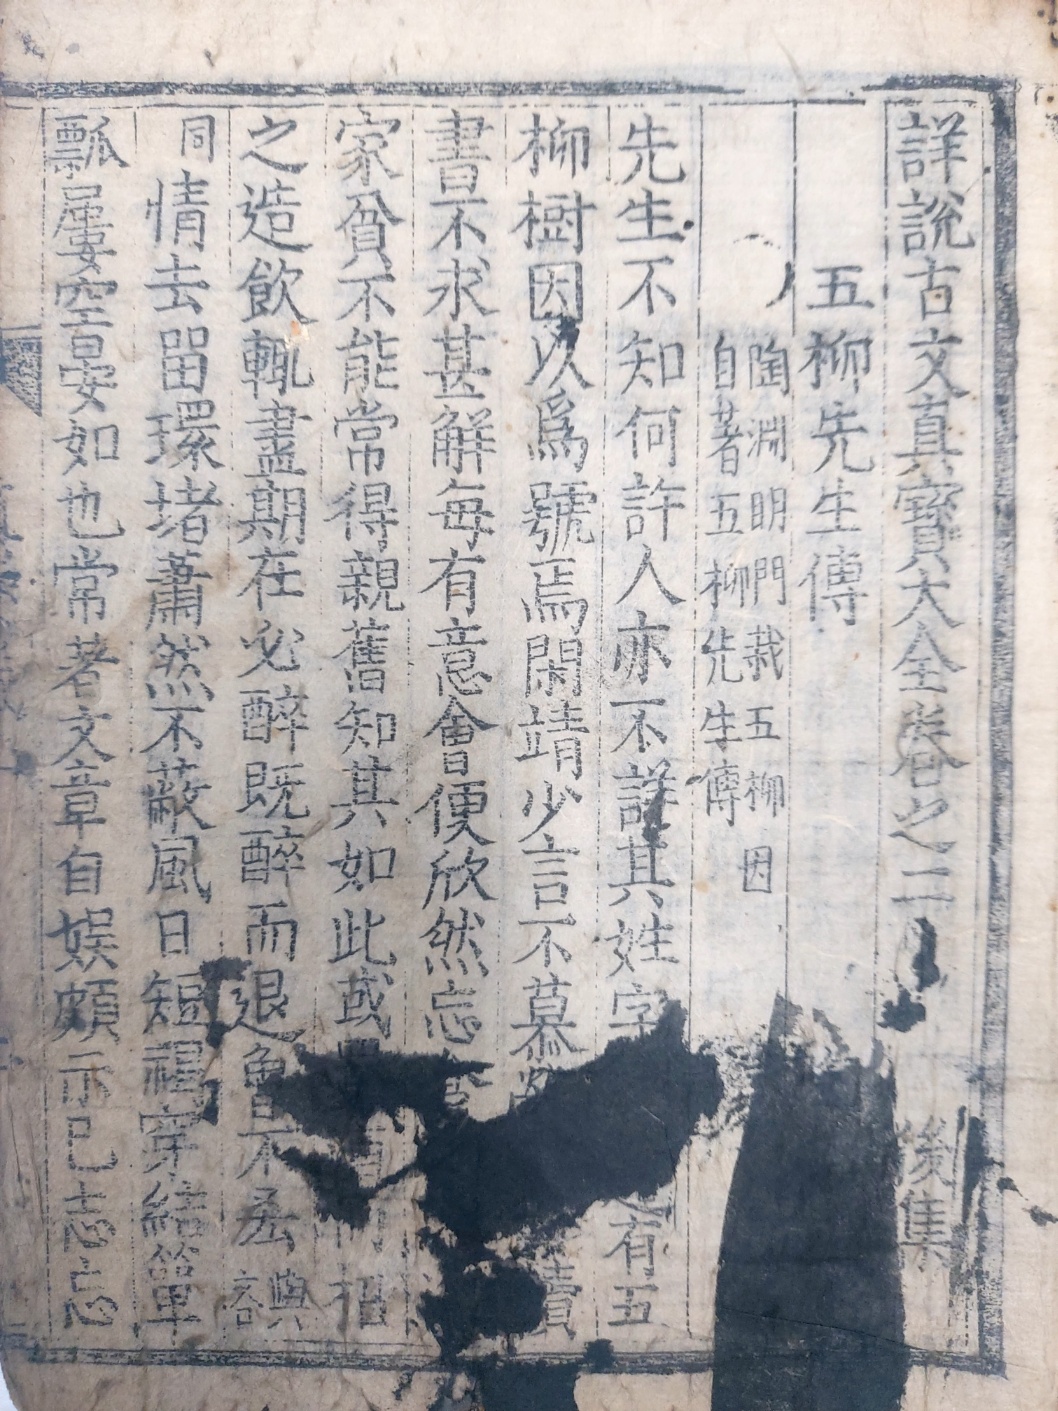 詳說古文真寶大全卷之二 後集
五柳先生傳
陶淵明門栽五柳因
自著五柳先生傳
先生不知何許人亦不詳其姓字 有五
柳樹因以爲號焉閑靖少言不慕 讀
書不求甚解每有意會便欣然忘
家貧不能常得親舊知其如此或 招
之造飮輒盡期在必醉既醉而退曾不吝
與吝
同情去留環堵蕭然不蔽風日短褐穿結簞
瓢屢空晏如也常著文章自娛頗示己志忘